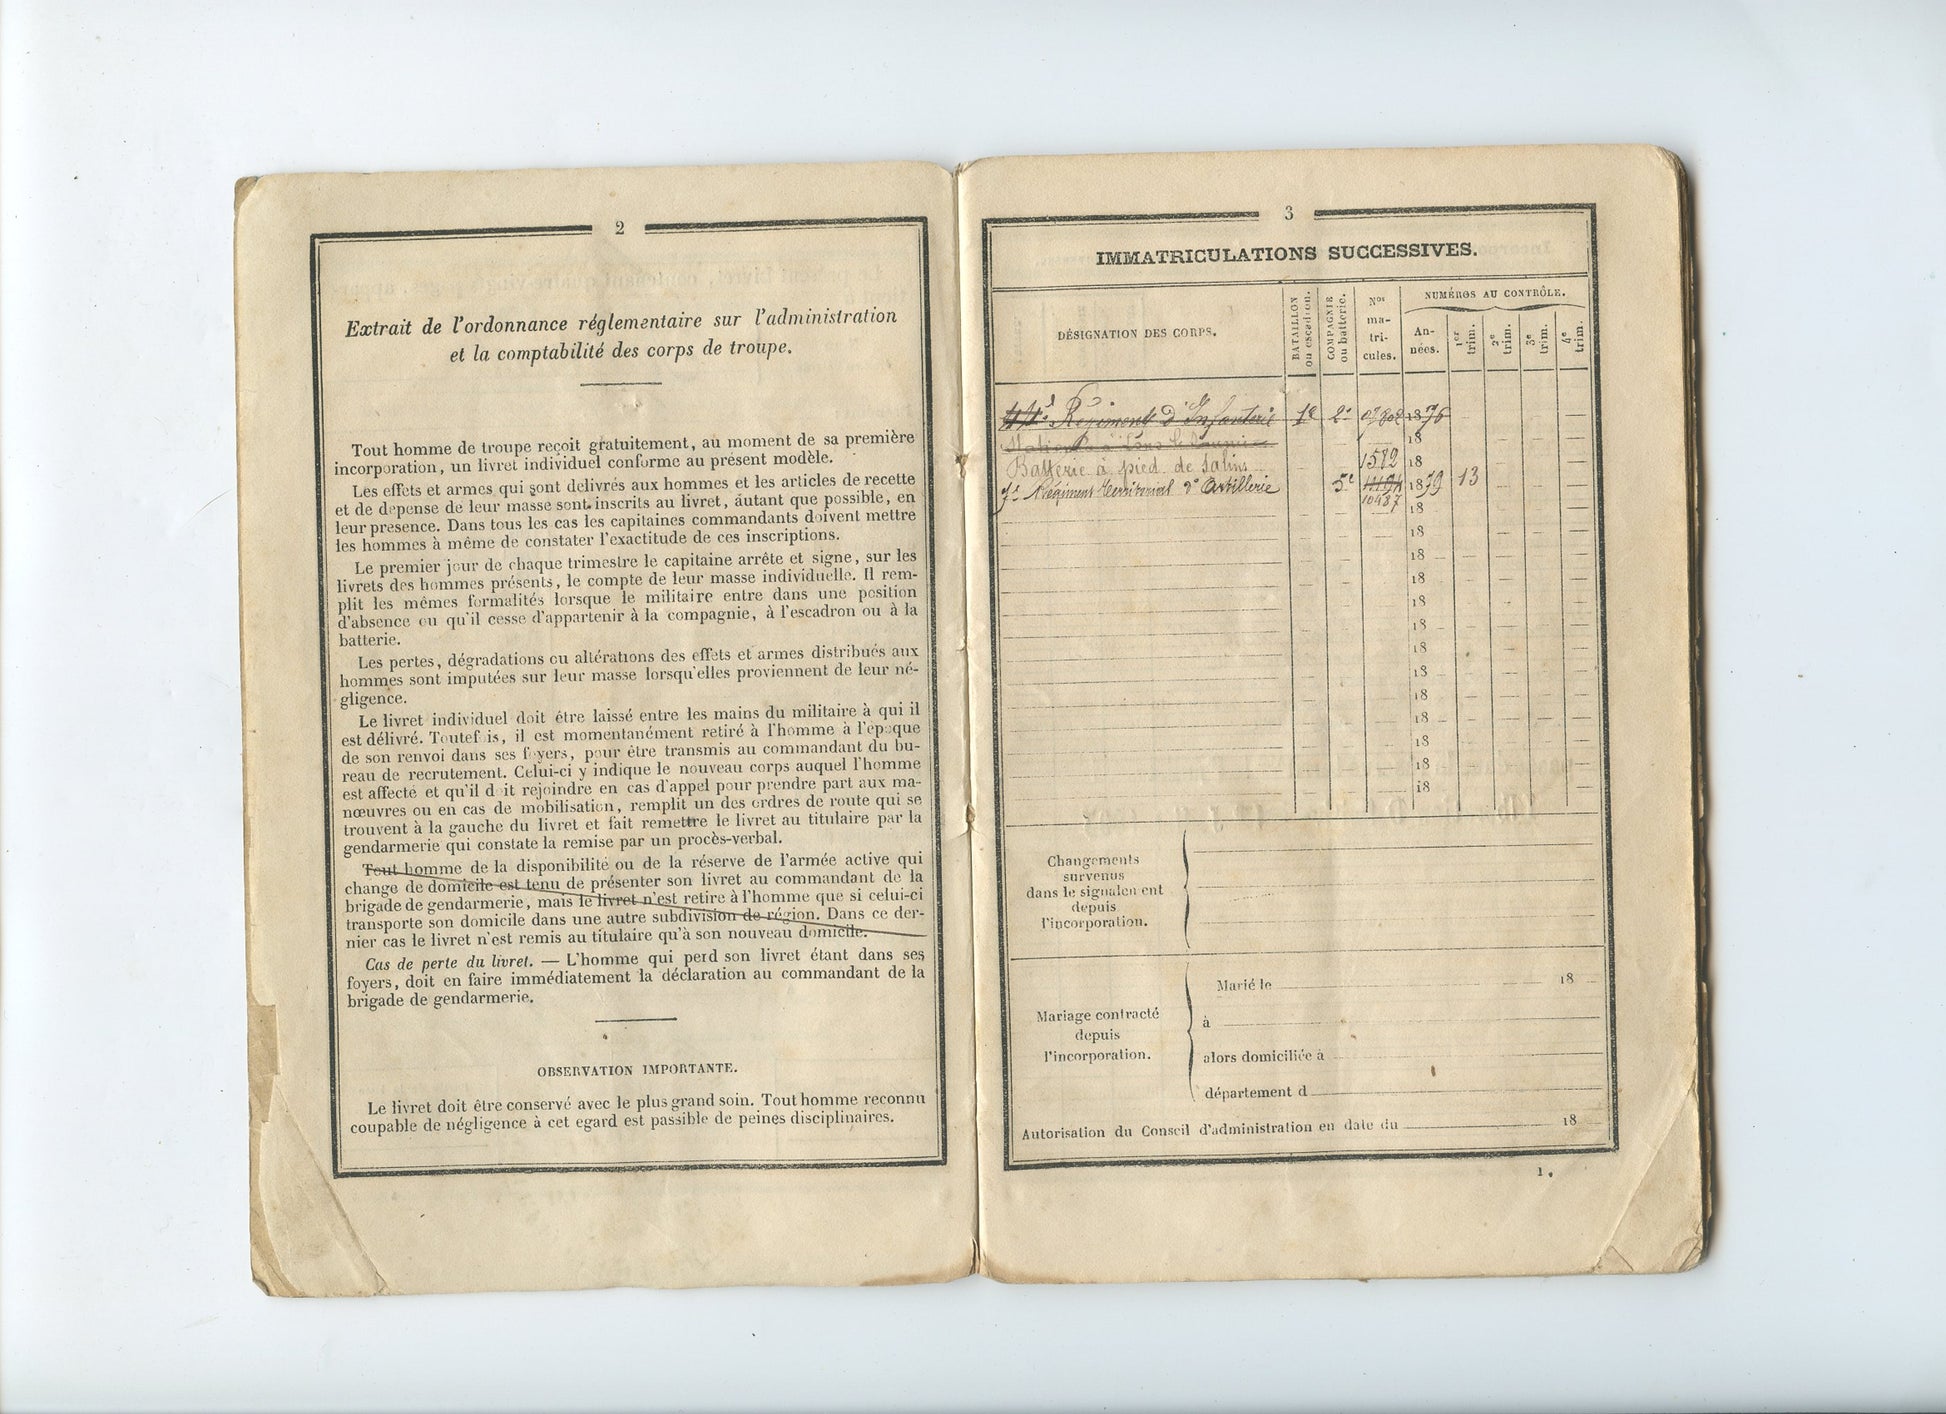 2
Extrait de l'ordonnance réglementaire sur l'administration
et la comptabilité des corps de troupe.
Tout homme de troupe reçoit gratuitement, au moment de sa première
incorporation, un livret individuel conforme au présent modèle.
Les effets et armes qui sont délivrés aux hommes et les articles de recette
et de dépense de leur masse sont inscrits au livret, autant que possible, en
leur présence. Dans tous les cas les capitaines commandants doivent mettre
les hommes à même de constater l'exactitude de ces inscriptions.
Le premier jour de chaque trimestre le capitaine arrête et signe, sur les
livrets des hommes présents, le compte de leur masse individuelle. Il rem-
plit les mêmes formalités lorsque le militaire entre dans une position
d'absence ou qu'il cesse d'appartenir à la compagnie, à l'escadron ou à la
batterie.
Les pertes, dégradations ou altérations des effets et armes distribués aux
hommes sont imputées sur leur masse lorsqu'elles proviennent de leur né-
gligence.
Le livret individuel doit être laissé entre les mains du militaire à qui il
est délivré. Toutefois, il est momentanément retiré à l'homme à l'époque
de son renvoi dans ses foyers, pour être transmis au commandant du bu-
reau de recrutement. Celui-ci y indique le nouveau corps auquel l'homme
est affecté et qu'il doit rejoindre en cas d'appel pour prendre part aux ma-
nœuvres ou en cas de mobilisation, remplit un des ordres de route qui se
trouvent à la gauche du livret et fait remettre le livret au titulaire par la
gendarmerie qui constate la remise par un procès-verbal.
Tout homme de la disponibilité ou de la réserve de l'armée active qui
change de domicile est tenu de présenter son livret au commandant de la
brigade de gendarmerie, mais le livret n'est retiré à l'homme que si celui-ci
transporte son domicile dans une autre subdivision de région. Dans ce der-
nier cas le livret n'est remis au titulaire qu'à son nouveau domicile.
Cas de perte du livret. — L'homme qui perd son livret étant dans ses
foyers, doit en faire immédiatement la déclaration au commandant de la
brigade de gendarmerie.
OBSERVATION IMPORTANTE.
Le livret doit être conservé avec le plus grand soin. Tout homme reconnu
coupable de négligence à cet egard est passible de peines disciplinaires.
3
IMMATRICULATIONS SUCCESSIVES.
DÉSIGNATION DES CORPS.
BATAILLON
ou escadron.
COMPAGNIE
ou batterie.
Nos
ma-
tri-
cules.
NUMÉROS AU CONTRÔLE.
An-
nées.
1er
trim.
2e
trim.
3e
trim.
4e
trim.
Régiment d'Infanterie 1e 2e 1876
18
Batterie à pied de Salins 1582 18
7e Régiment territorial d'Artillerie 5e 1879 13
10487 18
18
18
18
18
18
18
18
18
18
18
18
18
Changements
survenus
dans le signalement
depuis
l'incorporation.
Mariage contracté
depuis
l'incorporation.
Marié le 18
à
alors domiciliée à
département d
Autorisation du Conseil d'administration en date du 18
1.